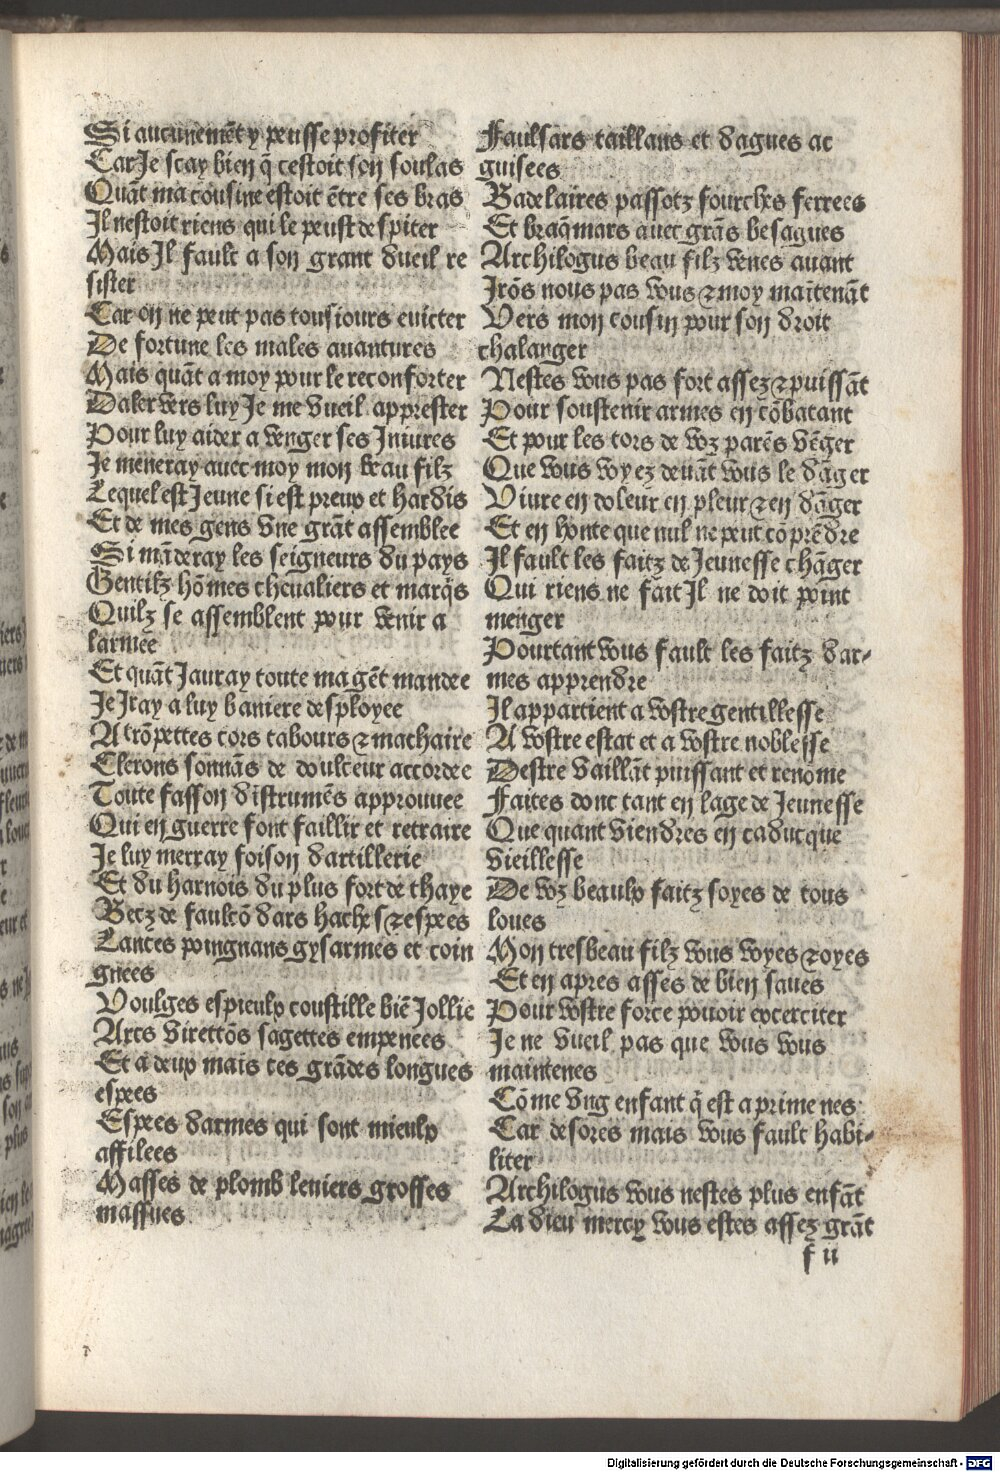 Si aucunemēt y peusse profiter
Car Je scay bien q̄ cestoit son soulas
Quāt ma cousine estoit ētre ses bras
Il nestoit riens qui le peust despiter
Mais Il fault a son grant dueil re
sister
Car on ne peut pas tousiours euicter
De fortune les males auantures
Mais quāt a moy pour le reconforter
Daler vers luy Je me vueil apprester
Pour luy aider a venger ses Iniures
Je meneray auec moy mon beau filz
Lequel est Jeune si est preux et hardis
Et de mes gens vne grāt assemblee
Si māderay les seigneurs du pays
Gentilz hōmes cheualiers et marq̄s
Quilz se assemblent pour venir a
larmee
Et quāt Jauray toute ma gēt mandee
Je Iray a luy baniere desployee
A trōpettes cors tabours ⁊ mathaire
Clerons sonnās de doulceur accordee
Toute fasson dīstrumēs approuuee
Qui en guerre font faillir et retraire
Je luy merray foison dartillerie
Et du harnois du plus fort de thaye
Becz de faulcō dars haches ⁊ espees
Lances poingnans gysarmes et coin
gnees
Voulges espieulx coustille biē Jollie
Arcs virettōs sagettes empenees
Et a deux mais ces grādes longues
espees
Espees darmes qui sont mieulx
affilees
Masses de plomb leuiers grosses
massues
Faulsars taillans et dagues ac
guisees
Badelaires passotz fourches ferrees
Et braq̄mars auec grās besagues
Archilogus beau filz venes auant
Irōs nous pas vous ⁊ moy maītenāt
Vers mon cousin pour son droit
chalanger
Nestes vous pas fort assez ⁊ puissāt
Pour soustenir armes en cōbatant
Et pour les tors de voz parēs vēger
Que vous voyez deuāt vous le dāger
Viure en doleur en pleur ⁊ en dāger
Et en honte que nul ne peut cōprēdre
Il fault les faitz de Jeunesse chāger
Qui riens ne fait Il ne doit point
menger
Pourtant vous fault les faitz dar-
mes apprendre
Il appartient a vostre gentillesse
A vostre estat et a vostre noblesse
Destre vaillāt puissant et renōme
Faites donc tant en lage de Jeunesse
Que quant viendres en caducque
vieillesse
De voz beaulx faitz soyes de tous
loues
Mon tresbeau filz vous voyes ⁊ oyes
Et en apres asses de bien saues
Pour vostre force pouoir excerciter
Je ne vueil pas que vous vous
maintenes
Cōme vng enfant q̄ est a prime nes
Car desores mais vous fault habi-
liter
Archilogus vous nestes plus enfāt
La dieu mercy vous estes assez grāt
f ii
Digitalisierung gefördert durch die Deutsche Forschungsgemeinschaft - DFG